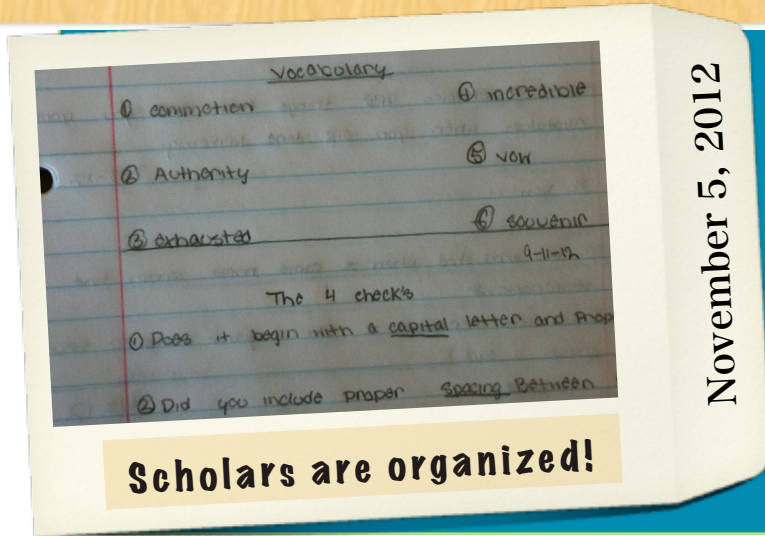 Vocabulary
① commotion
④ incredible
② Authority
⑤ vow
③ exhausted
⑥ souvenir
9-11-12
The 4 check's
① Does it begin with a capital letter and Prop
② Did you include proper spacing Between
Scholars are organized!
November 5, 2012